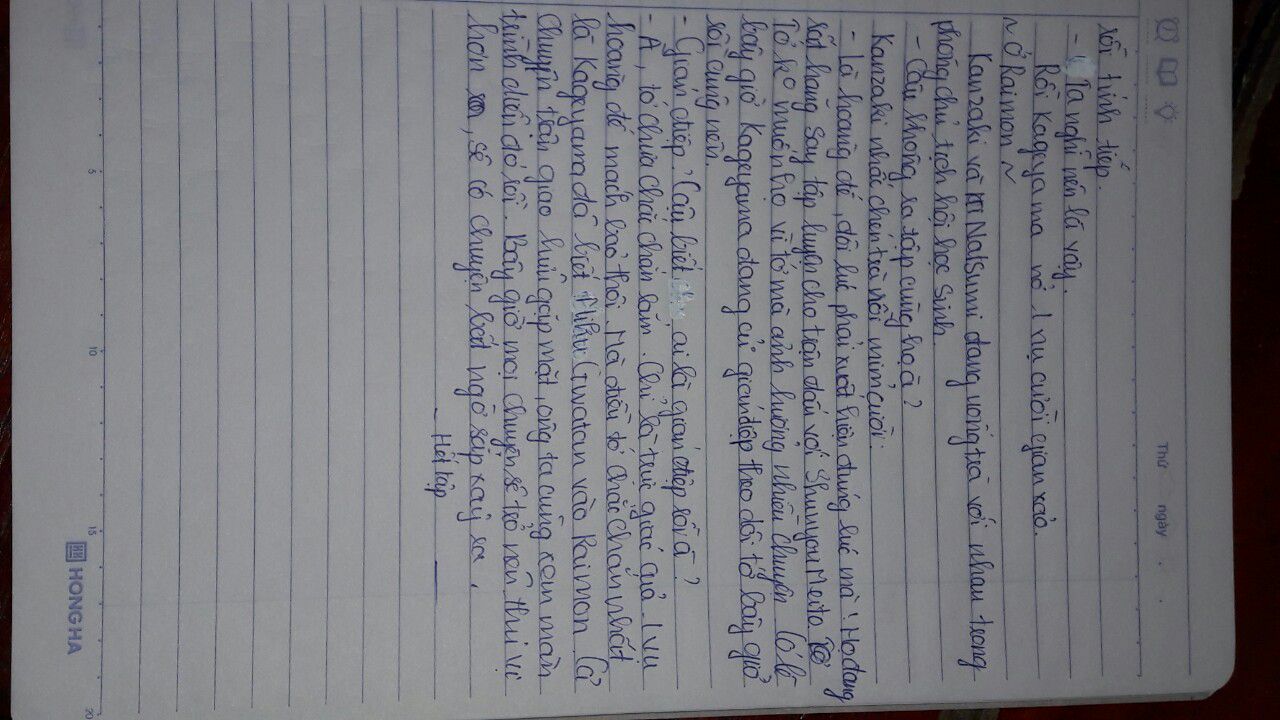 Thứ ngày
rồi tính tiếp.
- Ta nghĩ nên là vậy.
Rồi Kageyama nở 1 nụ cười gian xảo.
~ Ở Raimon ~
Kanzaki và Natsumi đang uống trà với nhau trong
phòng chủ tịch hội học sinh
- Cậu không ra tập cùng họ à?
Kanzaki nhấc chén trà rồi mỉm cười:
- Là hoàng đế, đôi lúc phải xuất hiện đúng lúc mà! Họ đang
rất hăng say tập luyện cho trận đấu với Shuuyou Meito
Tớ ko muốn họ vì tớ mà ảnh hưởng nhiều chuyện. Có lẽ
bây giờ Kageyama đang cử gián điệp theo dõi tớ bây giờ
rồi cũng nên.
- Gián điệp? Cậu biết, ai là gián điệp rồi à?
- À, tớ chưa chắc chắn lắm. Chỉ là trực giác của 1 vị
hoàng đế mách bảo thôi. Mà điều tớ chắc chắn nhất
là Kageyama đã biết Miku Gwatan vào Raimon. Cả
chuyện trận giao hữu gặp mặt, ông ta cũng xem màn
trình diễn đó rồi. Bây giờ mọi chuyện sẽ trở nên thú vị
hơn, sẽ có chuyện bất ngờ sắp xảy ra.
Hết tập
5
10
15
20
HONG HA